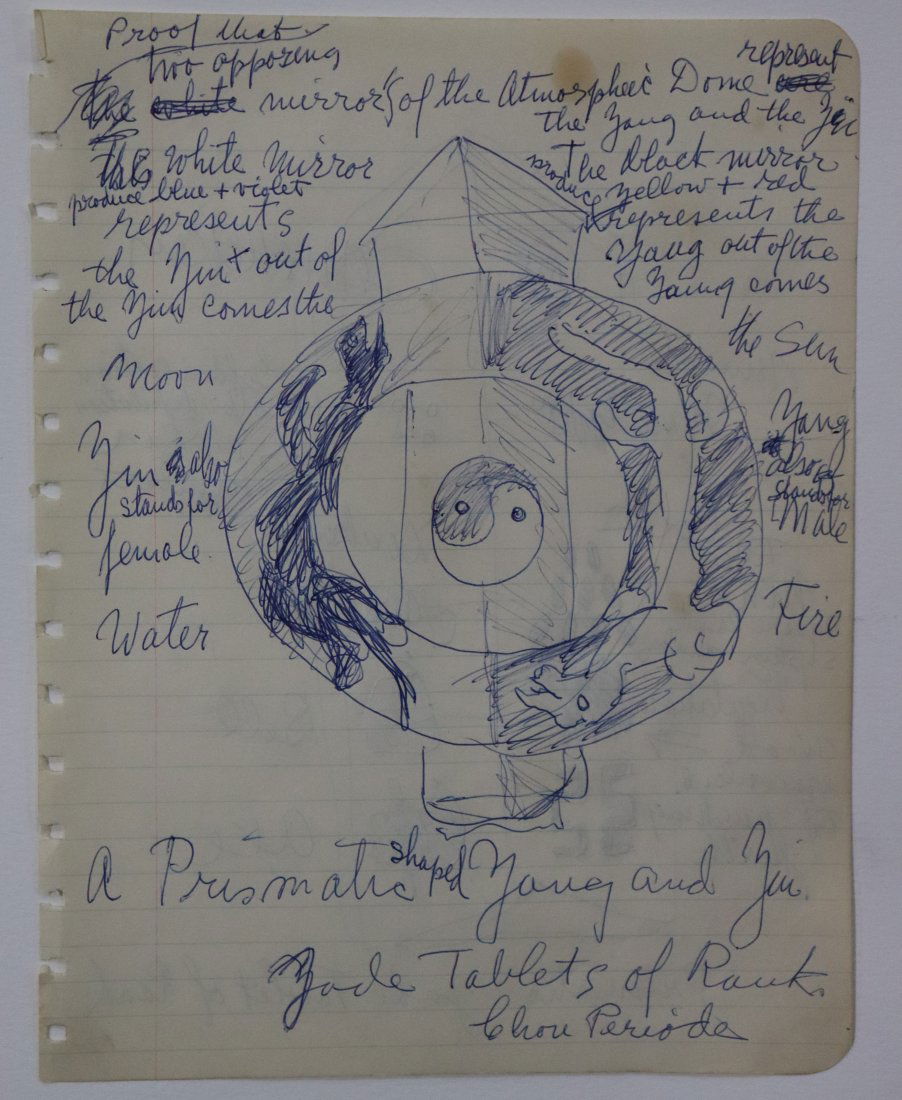 Proof that
two opposing
the white mirror's of the Atmospheric Dome represent
the Yang and the Yin
the White Mirror
produce blue + violet
represents
the Yin + out of
the Yin comes the
Moon
Yin also
stands for
female.
Water
The black mirror
produce yellow + red
represents the
Yang out of the
Yang comes
the Sun
Yang
also
stands for
Male
Fire
A Prismatic shaped Yang and Yin.
Jade Tablets of Rank.
Chou Periode